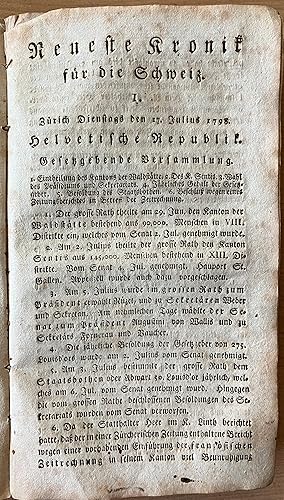 Neueste Kronik
für die Schweiz.
I.
Zürich Dienstags den 17. Julius 1798.
Helvetische Republik.
Gesezgebende Versammlung.
1. Eintheilung des Kantons der Waldstätte 2. Des K. Sentis. 3. Wahl
des Präsidiums und Sekretariats. 4. Jährliches Gehalt der Gesez-
geber. 5. Besoldung des Staatsbothen. 6. Beschluß wegen eines
Zeitungsberichts in Betreff der Zeitrechnung.
1. Der grosse Rath theilte am 29. Jun. den Kanton der
Waldstätte bestehend aus 90,000. Menschen in VIII.
Distrikte ein, welches vom Senat 2. Jul. genehmigt wurde.
2. Am 2. Julius theilte der grosse Rath des Kanton
Sentis aus 145,000. Menschen bestehend in XIII. Di-
strikte. Vom Senat 2. Jul. genehmigt. Hauptort St.
Gallen. Apell wurde auch dazu vorgeschlagen.
3. Am 5. Julius wurde im grossen Rath zum
Präsident erwählt Nuzet, und zu Sekretären Weber
und Secretan. Am nemlichen Tage wählte der Se-
nat zum Präsident Augustini von Wallis und zu
Sekretärs Fornerau und Bundler.
4. Die jährliche Besoldung der Gesezgeber von 275.
Louisd'ors wurde am 2. Julius vom Senat genehmigt.
5. Am 3. Julius bestimmte der grosse Rath dem
Staatsbothen oder Abwart 50. Louisd'or jährlich, wel-
ches am 6. Jul. vom Senat genehmigt wurde. Hingegen
die vom grossen Rathe beschlossenen Besoldungen des Se-
kretariats wurden vom Senat verworfen.
6. Da der Statthalter Heer im K. Linth berichtet
hatte, daß der in einer Zürcherischen Zeitung enthaltene Bericht
wegen einer vorhabenden Einführung der französischen
Zeitrechnung in seinem Kanton viel Beunruhigung